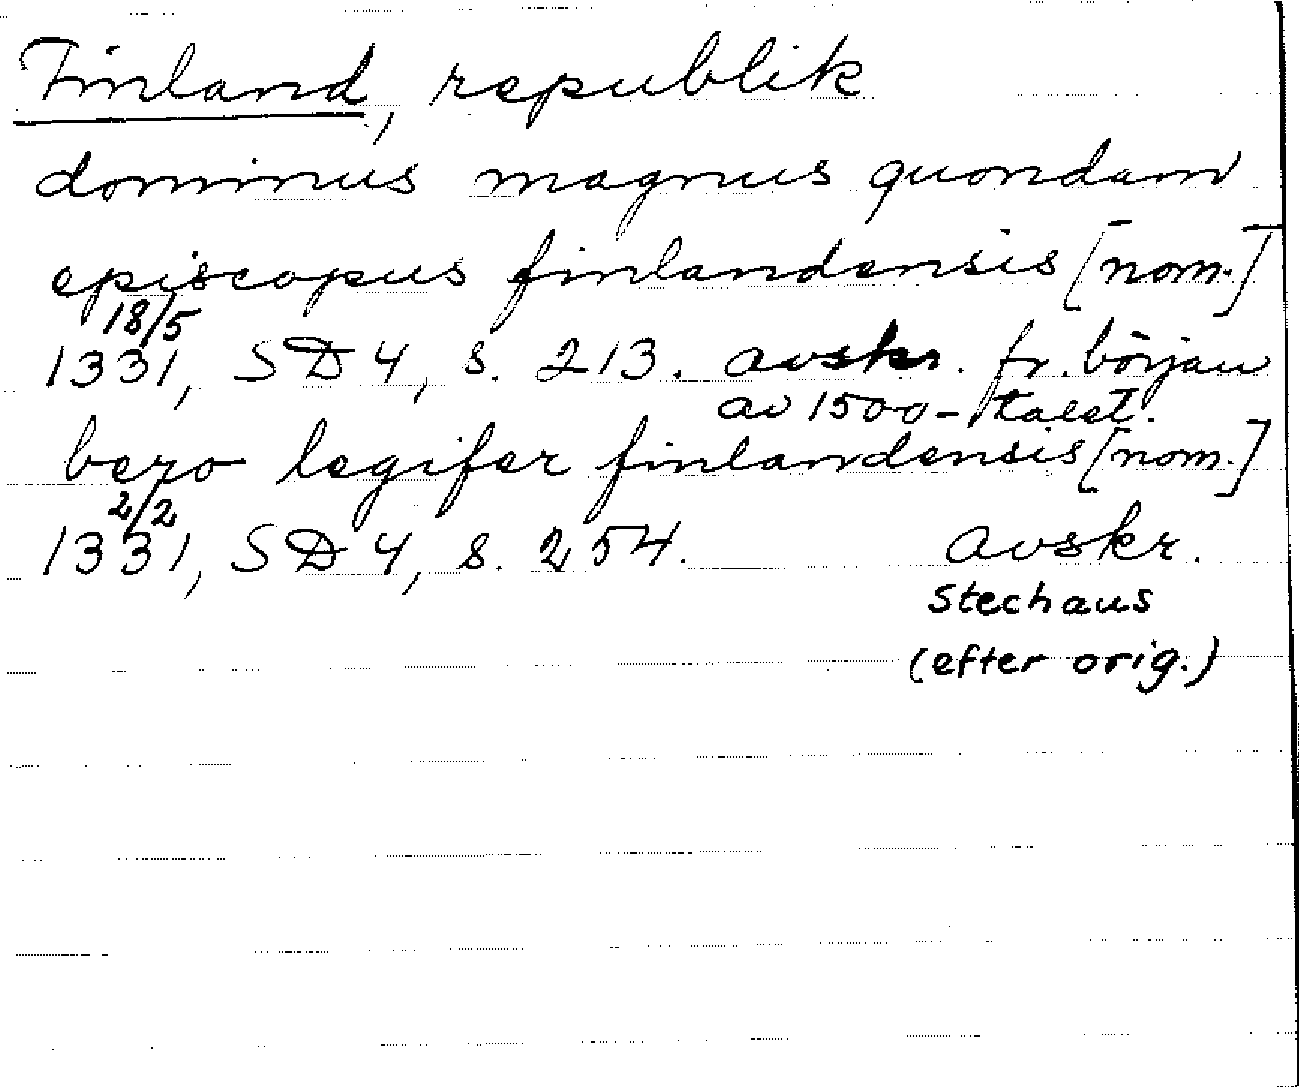 Finland, republik
dominus magnus quondam
episcopus finlandensis [nom.]
18/5
1331, SD 4, s. 213. avskr. fr. början
av 1500-talet.
bero legifer finlandensis [nom.]
2/2
1331, SD 4, s. 254. avskr.
Stechaus
(efter orig.)